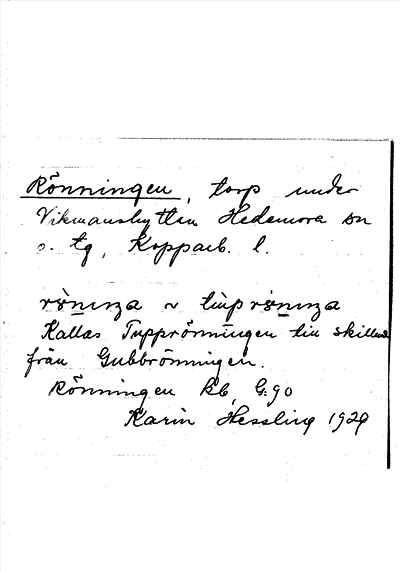 Rönningen, torp under
Vikmanshyttan Hedemora sn
o. tg, Kopparb. l.
Kallas Tupprönningen till skillnad
från Gubbrönningen.
Rönningen kb, G:90
Karin Hessling 1929